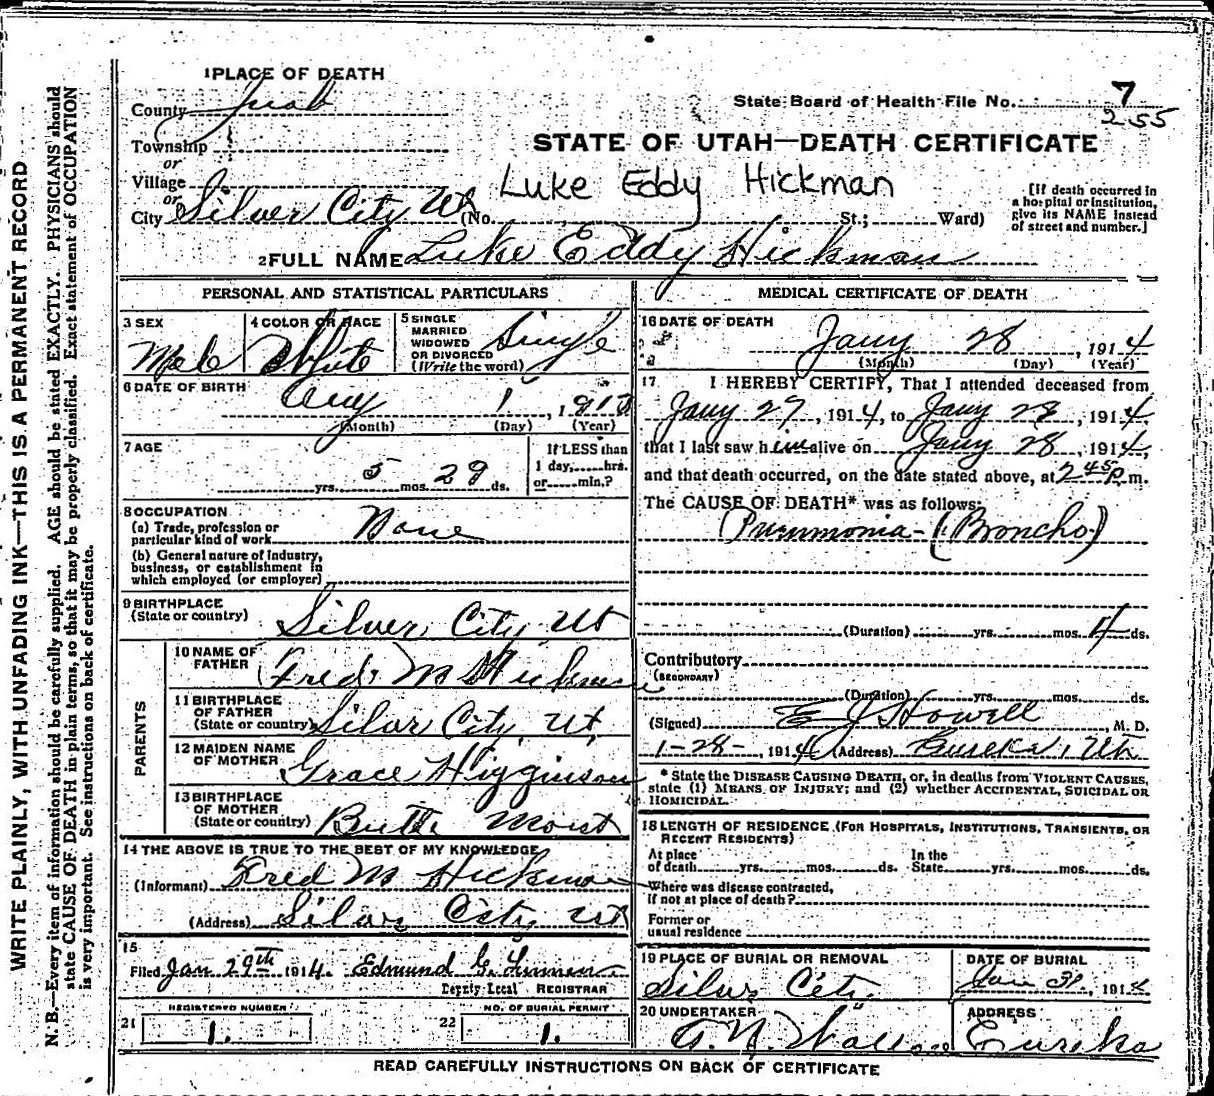 WRITE PLAINLY, WITH UNFADING INK—THIS IS A PERMANENT RECORD
N. B.—Every item of information should be carefully supplied. AGE should be stated EXACTLY. PHYSICIANS should
state CAUSE OF DEATH in plain terms, so that it may be properly classified. Exact statement of OCCUPATION
is very important. See instructions on back of certificate.
1 PLACE OF DEATH
County Juab
State Board of Health File No. 7
255
Township
or
STATE OF UTAH—DEATH CERTIFICATE
Village
or
Luke Eddy Hickman
City Silver City Ut (No. St.; Ward)
[If death occurred in
a hospital or institution,
give its NAME instead
of street and number.]
2 FULL NAME Luke Eddy Hickman
PERSONAL AND STATISTICAL PARTICULARS
3 SEX
Male
4 COLOR OR RACE
White
5 SINGLE
MARRIED
WIDOWED
OR DIVORCED
(Write the word)
Single
6 DATE OF BIRTH
Aug 1, 1913
(Month) (Day) (Year)
7 AGE
yrs. 5 mos. 29 ds.
If LESS than
1 day, hrs.
or min.?
8 OCCUPATION
(a) Trade, profession or
particular kind of work None
(b) General nature of industry,
business, or establishment in
which employed (or employer)
9 BIRTHPLACE
(State or country) Silver City Ut
PARENTS
10 NAME OF
FATHER Fred M Hickman
11 BIRTHPLACE
OF FATHER
(State or country) Silver City, Ut,
12 MAIDEN NAME
OF MOTHER Grace Higginson
13 BIRTHPLACE
OF MOTHER
(State or country) Butte Mont
14 THE ABOVE IS TRUE TO THE BEST OF MY KNOWLEDGE
(Informant) Fred M Hickman
(Address) Silver City Ut
15
Filed Jan 29th 1914. Edmund G.
Deputy Local REGISTRAR
REGISTERED NUMBER
21 1.
NO. OF BURIAL PERMIT
22 1.
MEDICAL CERTIFICATE OF DEATH
16 DATE OF DEATH
Jany 28, 1914
(Month) (Day) (Year)
17 I HEREBY CERTIFY, That I attended deceased from
Jany 27, 1914, to Jany 28, 1914,
that I last saw him alive on Jany 28, 1914,
and that death occurred, on the date stated above, at 2 45 P m.
The CAUSE OF DEATH* was as follows:
Pneumonia - (Broncho)
(Duration) yrs. mos. 4 ds.
Contributory
(SECONDARY)
(Duration) yrs. mos. ds.
(Signed) E J Howell, M. D.
1-28-, 1914 (Address) Eureka, Ut.
* State the DISEASE CAUSING DEATH, or, in deaths from VIOLENT CAUSES,
state (1) MEANS OF INJURY; and (2) whether ACCIDENTAL, SUICIDAL OR
HOMICIDAL.
18 LENGTH OF RESIDENCE (FOR HOSPITALS, INSTITUTIONS, TRANSIENTS, OR
RECENT RESIDENTS)
At place
of death yrs. mos. ds.
In the
State yrs. mos. ds.
Where was disease contracted,
if not at place of death?
Former or
usual residence
19 PLACE OF BURIAL OR REMOVAL
Silver City
DATE OF BURIAL
Jan 31, 1914
20 UNDERTAKER
A. N.
ADDRESS
Eureka
READ CAREFULLY INSTRUCTIONS ON BACK OF CERTIFICATE